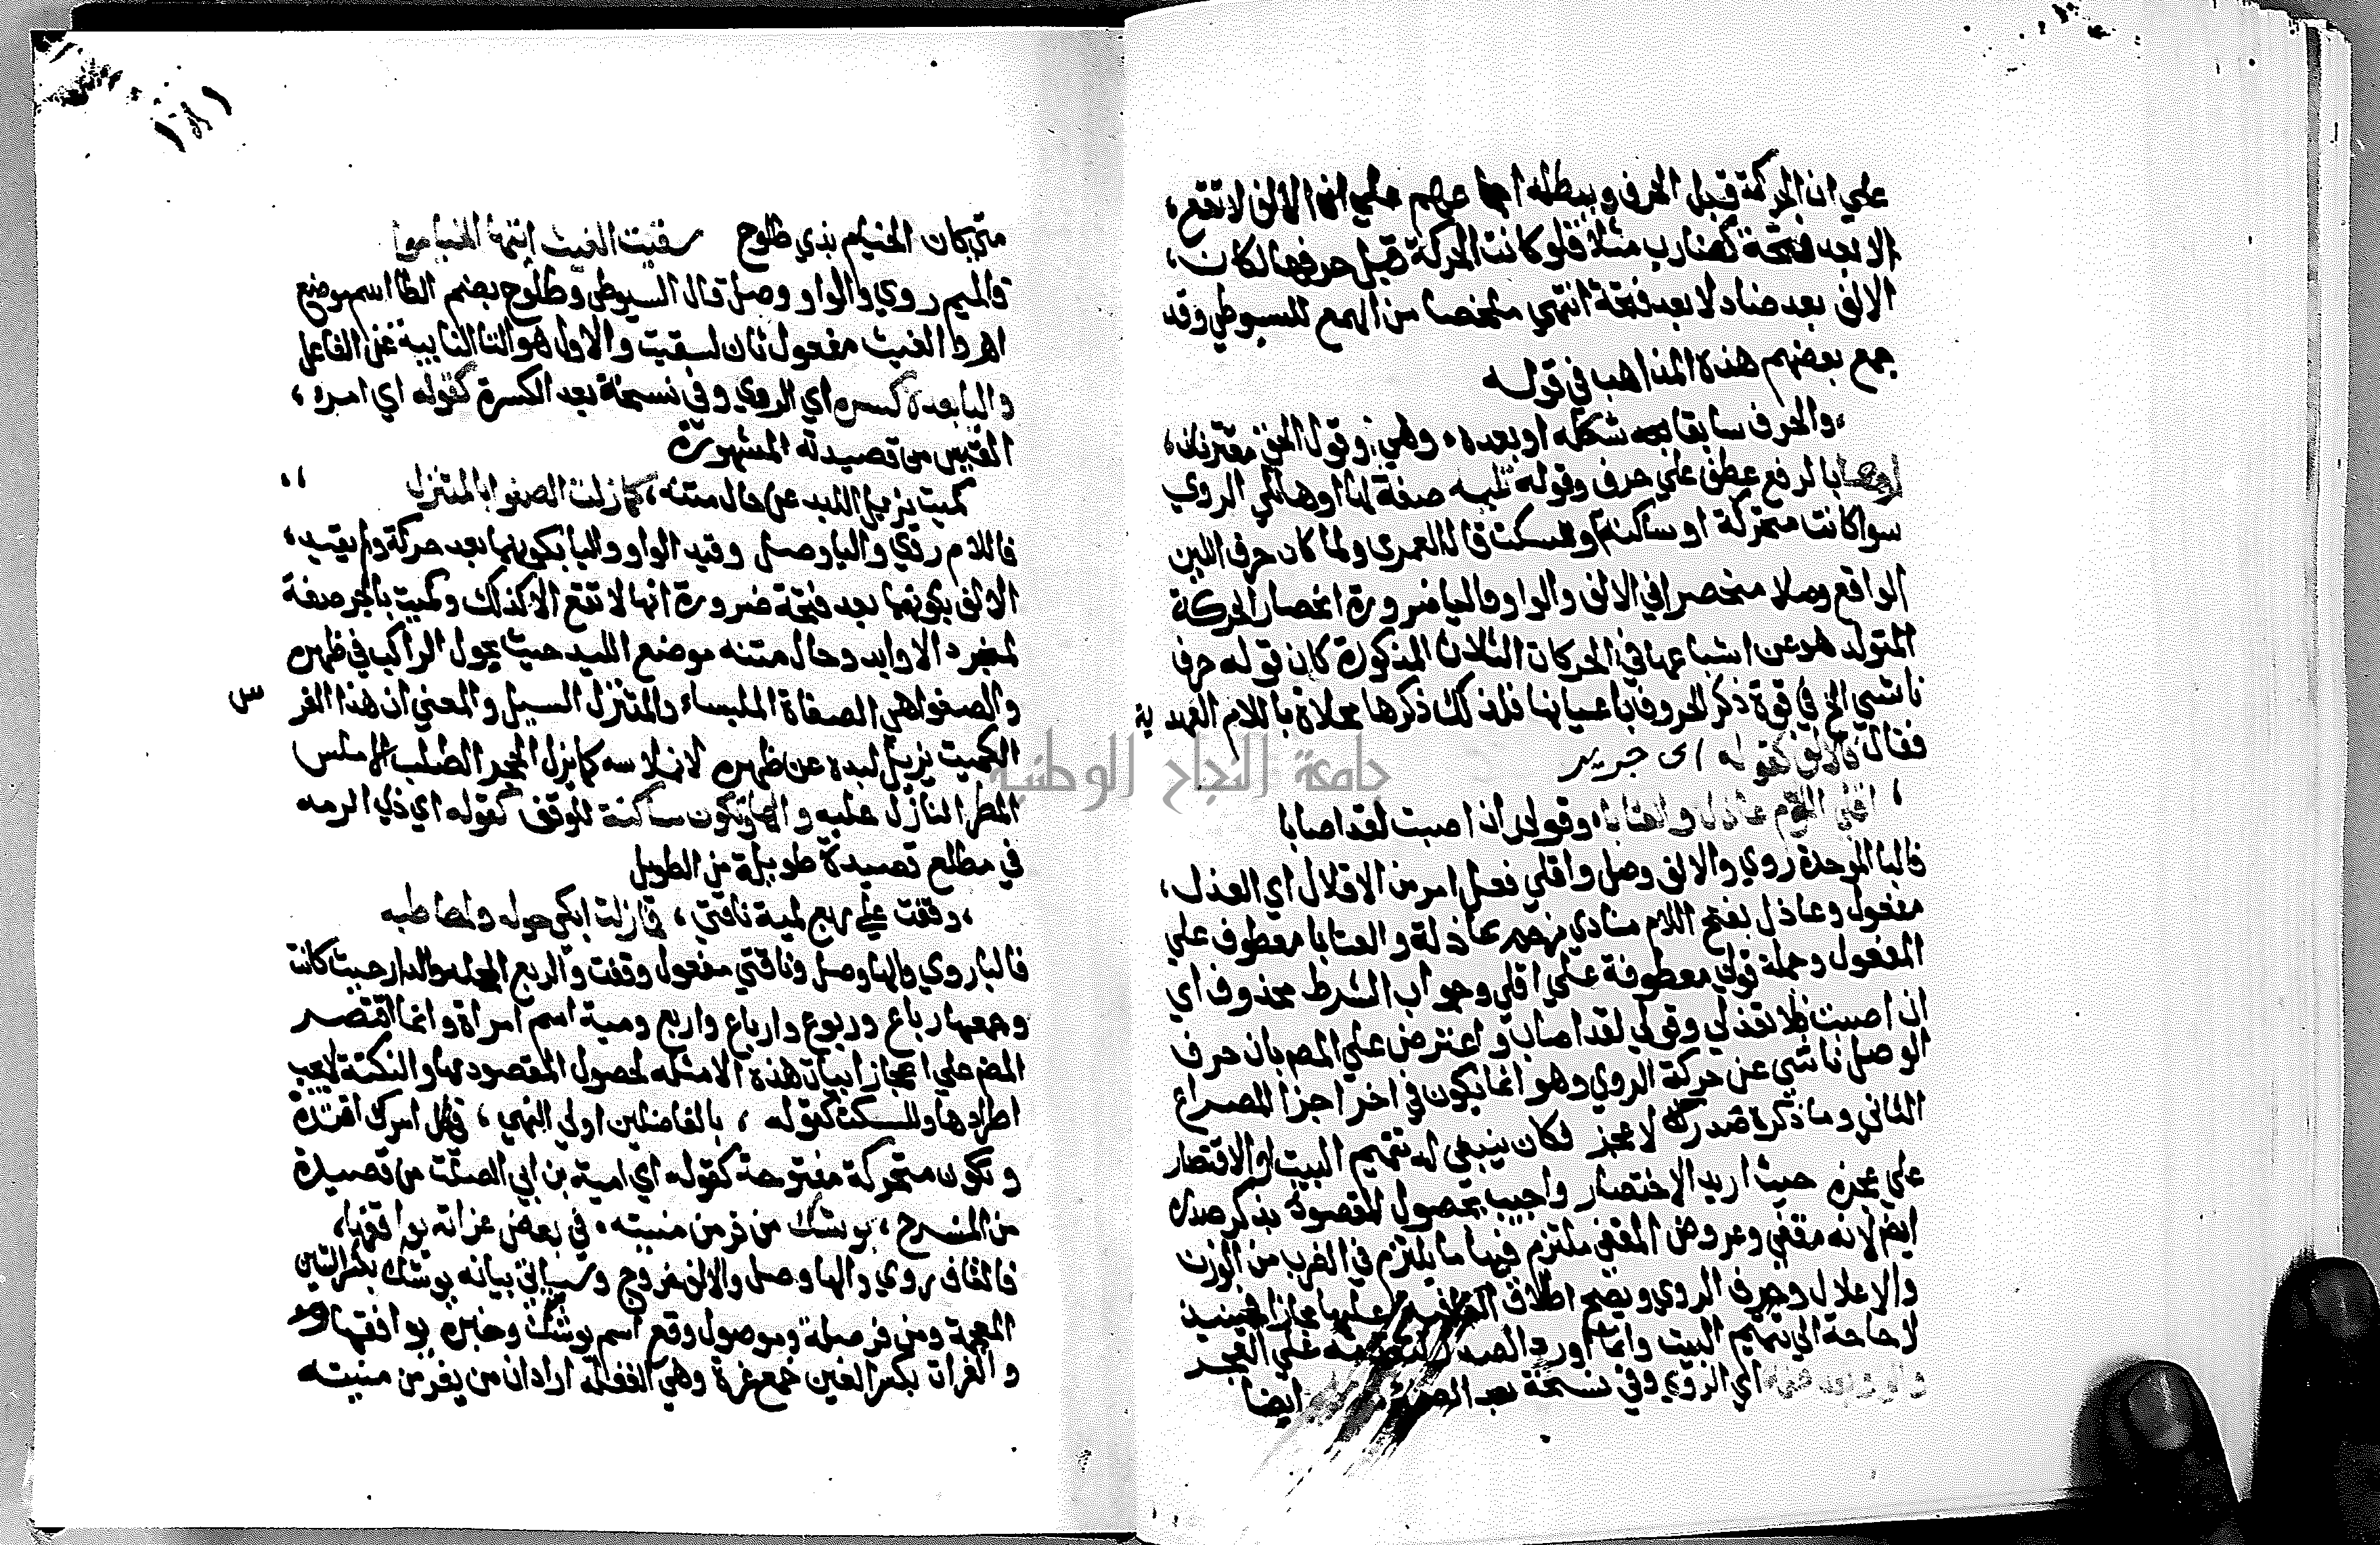 علي ان الحركة قبل الحرف ويبطله اجماعهم علي ان الالف لا تقع
الا بعد فتحة كضارب مثلا فلو كانت الحركة قبل حرفها لكان
الالف بعد ضاد لا بعد فتحة انتهي ملخصا من الهمع للسيوطي وقد
جمع بعضهم هذه المذاهب في قوله
والحرف سابقا شكله او بعده وهي وقول الحق مقترنان
اوها بالرفع عطف علي حرف وقوله تليه صفة لها اوها تلي الروي
سواكانت متحركة او ساكنة وللسكت قال العمري ولما كان حرف اللين
الواقع وصلا منحصرا في الالف والواو والياء ضرورة انحصار الحركة
المتولد هو عن اشباعها في الحركات الثلاث المذكورة كان قوله حرف
ناشي الخ في قوة ذكر الحروف باعيانها فلذلك ذكرها محلاة باللام العهدية
فقال فالالف كقوله اى جرير
اقلي اللوم عاذل والعتابا وقولي ان اصبت لقد اصابا
فالبا الموحدة روي والالف وصل واقلي فعل امر من الاقلال اي العذل
مفعول وعاذل بفتح اللام منادي مرخم عاذلة والعتابا معطوف علي
المفعول وجملة قولي معطوفة علي اقلي وجواب الشرط محذوف اي
ان اصبت فلا تعذلي وقولي لقد اصاب واعترض علي المص بان حرف
الوصل ناشي عن حركة الروي وهو انما يكون في اخر اجزا المصراع
الثاني وما ذكره صدر لا عجز فكان ينبغي له تتميم البيت او الاقتصار
علي عجزه حيث اريد الاختصار واجيب بحصول المقصود بذكر صدره
ايض لانه مقفي وعروض المقفي ملتزم فيها ما يلتزم في الضرب من الوزن
والاعلال وحرف الروي ويصح اطلاق القافية عليها مجازا فحينيذ
لا حاجة الي تتميم البيت وانما اورد الصدر علي العجز
اي الروي وفي نسخة بعد ايضا
١٨١
متي كان الخيام بذي طلوح سقيت الغيث ايتها الخيامو
فالميم روي والواو وصل قال السيوطي وطلوح بضم الطا اسم موضع
اهر والغيث مفعول ثان لسقيت والاول هو التا النايبة عن الفاعل
واليا بعد كسره اي الروي وفي نسخة بعد الكسرة كقوله اي امرء
القيس من قصيدته المشهورة
كميت يزيل اللبد عن حال متنه كما زلت الصفوا بالمتنزل
فاللام روي واليا وصل وقيد الواو واليا بكونهما بعد حركة ولم يقيد
الالف بكونها بعد فتحة ضرورة انها لا تقع الا كذلك وكميت بالجر صفة
لمنجرد الاوابد وحال متنه موضع اللبد حيث يجول الراكب في ظهره
والصفوا هي الصفاة الملساء والمتنزل السيل والمعني ان هذا الفر س
الكميت يزيل لبده عن ظهره لانملاسه كما يزل الحجر الصلب الاملس
المطر النازل عليه والها وتكون ساكنة للوقف كقوله اي ذي الرمه
في مطلع قصيدة طويلة من الطويل
وقفت علي ربع لمية ناقتي فما زلت ابكي حوله واخاطبه
فالبا روي والها وصل وناقتي مفعول وقفت والربع المحله والدار حيث كانت
وجمعها رباع وربوع وارباع واربع ومية اسم امراة وانما اقتصر
المص علي اعجاز ابيات هذه الامثله لحصول المقصود بها والنكتة لا يجب
اطرادها وللسكت كقوله بالفاضلين اولي النهي في كل امرك اقتده
وتكون متحركة مفتوحة كقوله اي امية بن ابي الصلت من قصيدة
من المنسرح يوشك من فر من منيته في بعض غراته يوافقها
فالقاف روي والها وصل والالف خروج وسياتي بيانه يوشك بكسر الشين
المعجمة ومن فر صلة وموصول وقع اسم يوشك وخبره يوافقها
والغرات بكسر الغين جمع غرة وهي الغفلة اراد ان من يفر من منيته